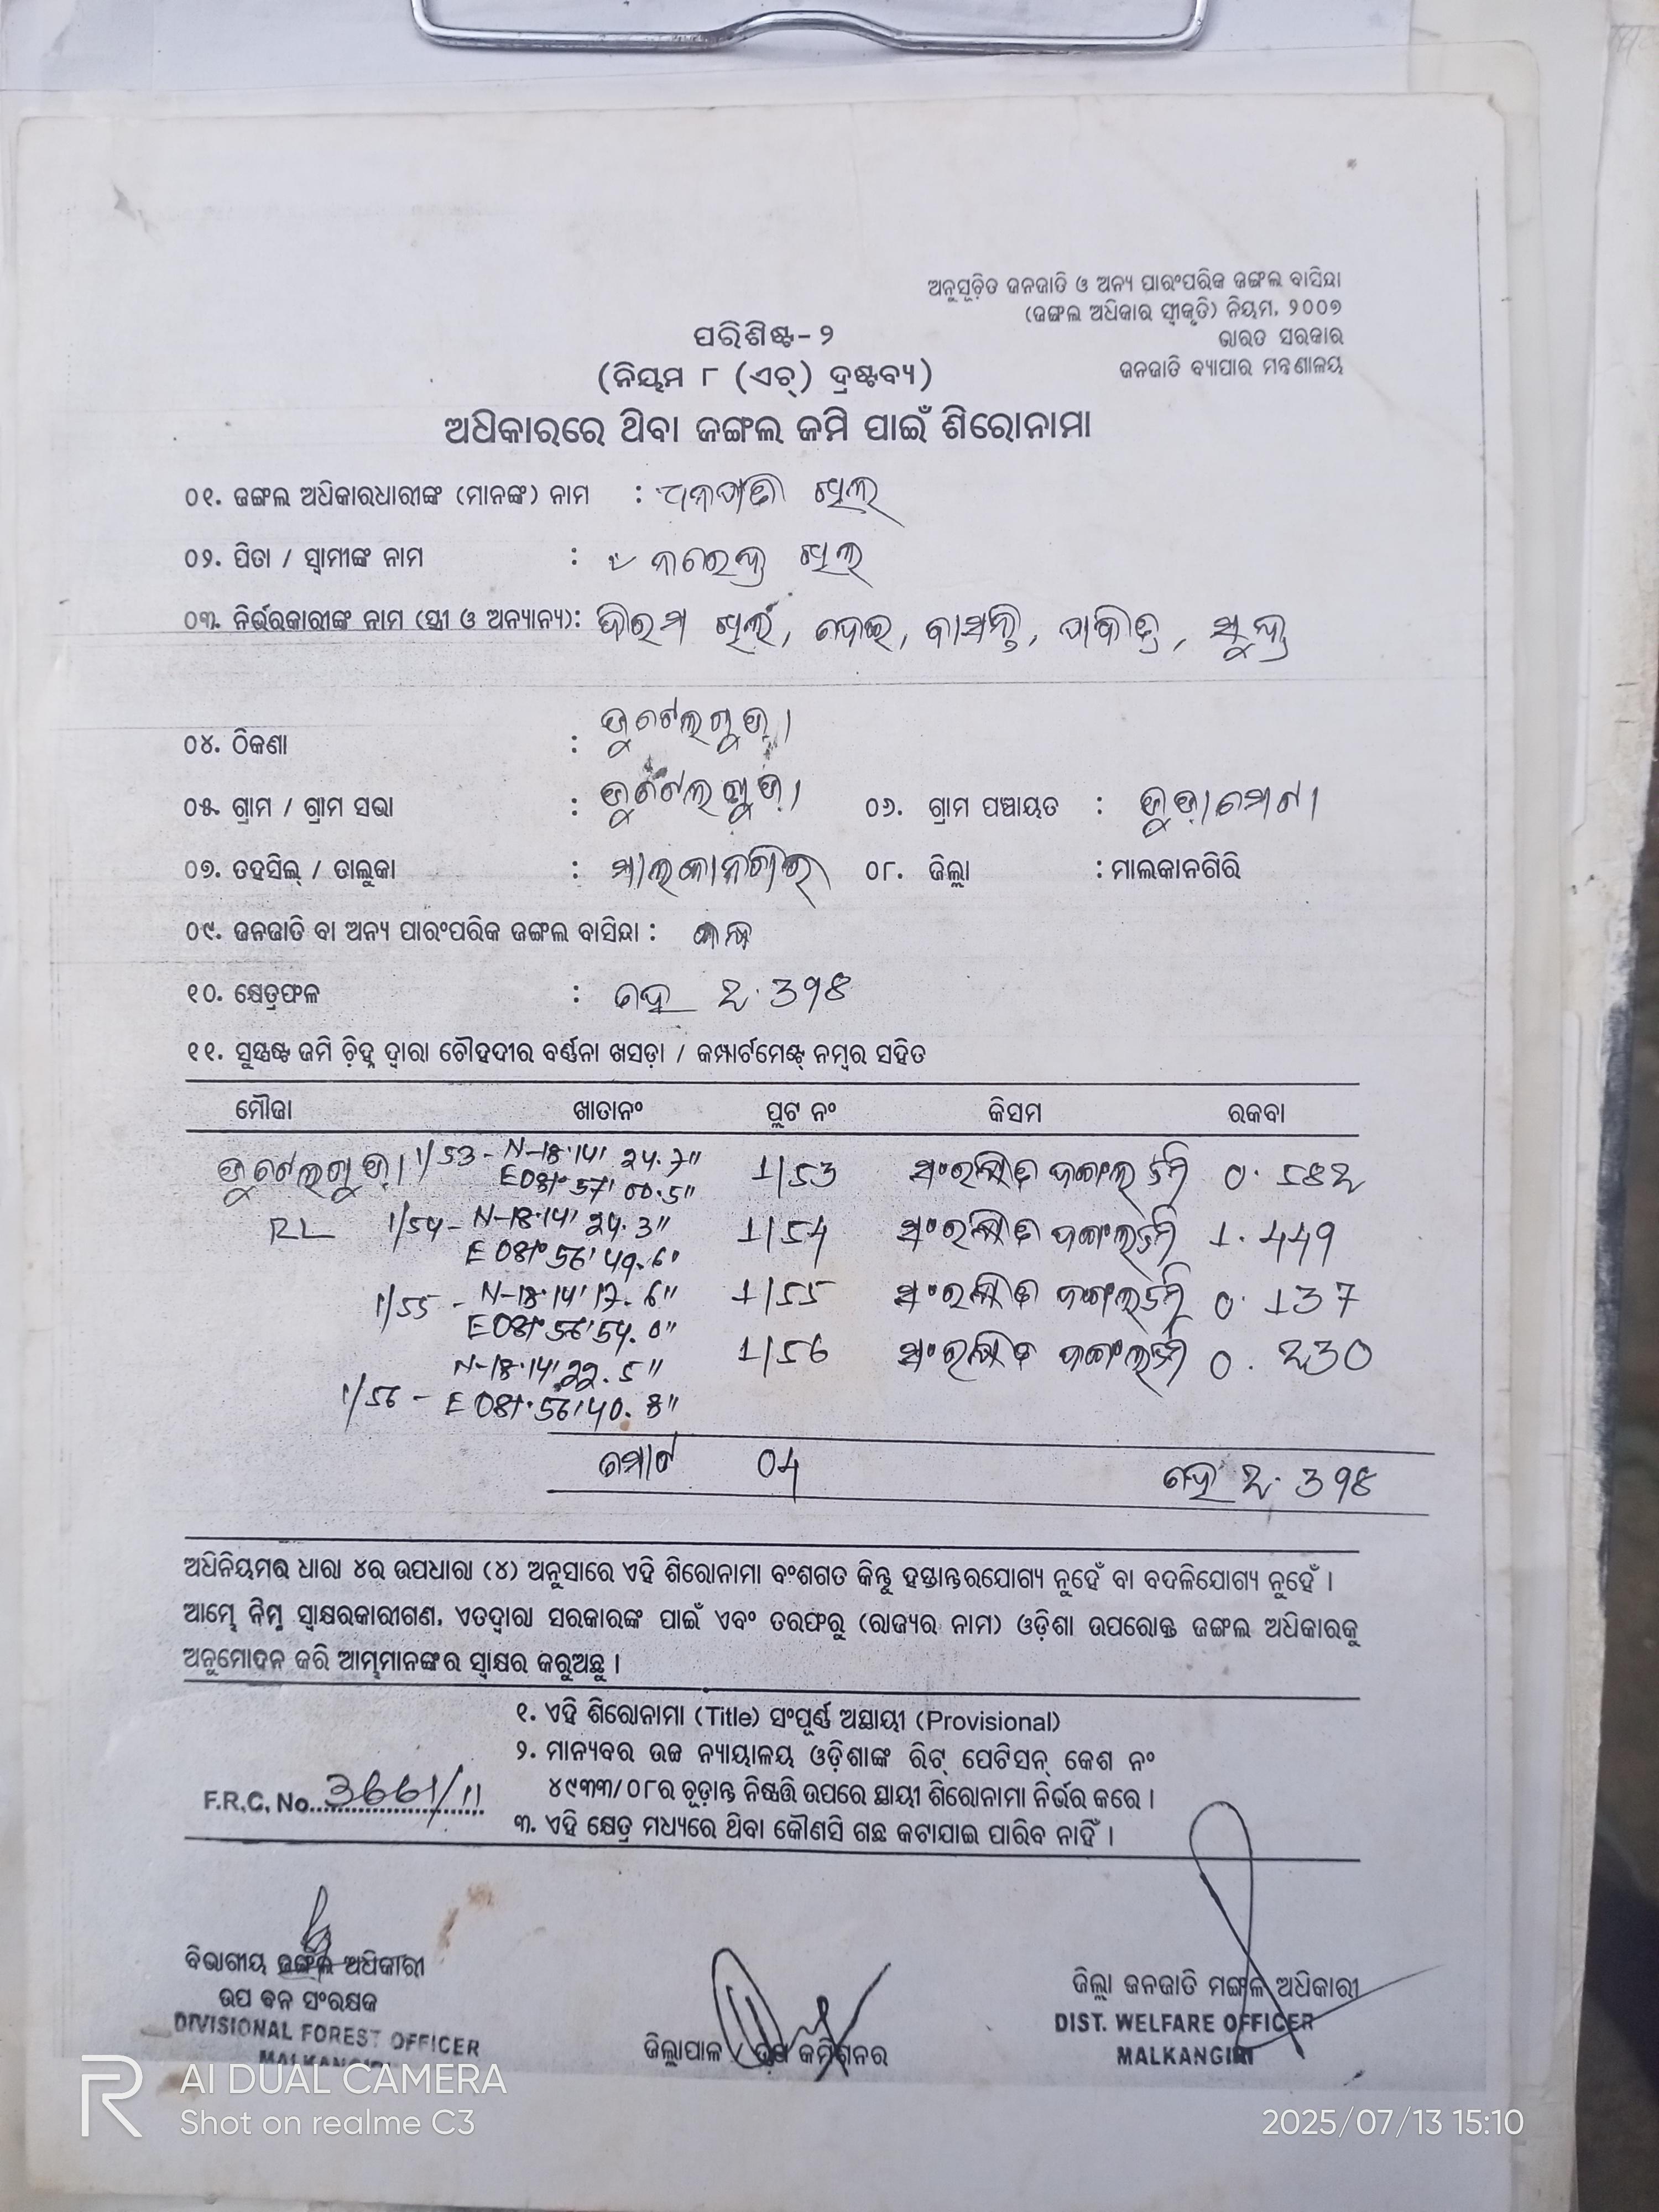 ଅନୁସୂଚିତ ଜନଜାତି ଓ ଅନ୍ୟ ପାରଂପରିକ ଜଙ୍ଗଲ ବାସିନ୍ଦା
(ଜଙ୍ଗଲ ଅଧିକାର ସ୍ୱୀକୃତି) ନିୟମ, ୨୦୦୭
ଭାରତ ସରକାର
ଜନଜାତି ବ୍ୟାପାର ମନ୍ତ୍ରଣାଳୟ
ପରିଶିଷ୍ଟ-୨
(ନିୟମ ୮ (ଏଚ୍) ଦ୍ରଷ୍ଟବ୍ୟ)
ଅଧିକାରରେ ଥିବା ଜଙ୍ଗଲ ଜମି ପାଇଁ ଶିରୋନାମା
୦୧. ଜଙ୍ଗଲ ଅଧିକାରଧାରୀଙ୍କ (ମାନଙ୍କ) ନାମ :
୦୨. ପିତା / ସ୍ୱାମୀଙ୍କ ନାମ : ନରେନ୍ଦ୍ର
୦୩. ନିର୍ଭରକାରୀଙ୍କ ନାମ (ସ୍ତ୍ରୀ ଓ ଅନ୍ୟାନ୍ୟ):
୦୪. ଠିକଣା :
୦୫. ଗ୍ରାମ / ଗ୍ରାମ ସଭା : ୦୬. ଗ୍ରାମ ପଞ୍ଚାୟତ :
୦୭. ତହସିଲ୍ / ତାଲୁକା : ମାଲକାନଗିରି ୦୮. ଜିଲ୍ଲା : ମାଲକାନଗିରି
୦୯. ଜନଜାତି ବା ଅନ୍ୟ ପାରଂପରିକ ଜଙ୍ଗଲ ବାସିନ୍ଦା : କନ୍ଧ
୧୦. କ୍ଷେତ୍ରଫଳ : ହେ 2.398
୧୧. ସୁସ୍ପଷ୍ଟ ଜମି ଚିହ୍ନ ଦ୍ୱାରା ଚୌହଦୀର ବର୍ଣ୍ଣନା ଖସଡ଼ା / କମ୍ପାର୍ଟମେଣ୍ଟ୍ ନମ୍ବର ସହିତ
ମୌଜା ଖାତାନଂ ପ୍ଲଟ ନଂ କିସମ ରକବା
1/53 - N-18°14' 24.7" 1/53 ସଂରକ୍ଷିତ ଜଙ୍ଗଲ ଜମି 0.582
E 081° 57' 00.5"
RL 1/54 - N-18°14' 24.3" 1/54 ସଂରକ୍ଷିତ ଜଙ୍ଗଲ ଜମି 1.449
E 081° 56' 49.6"
1/55 - N-18°14' 17.6" 1/55 ସଂରକ୍ଷିତ ଜଙ୍ଗଲ ଜମି 0.137
E 081° 56' 54.0"
N-18°14' 22.5" 1/56 ସଂରକ୍ଷିତ ଜଙ୍ଗଲ ଜମି 0.230
1/56 - E 081° 56' 40.8"
ମୋଟ 04 ହେ 2.398
ଅଧିନିୟମର ଧାରା ୪ର ଉପଧାରା (୪) ଅନୁସାରେ ଏହି ଶିରୋନାମା ବଂଶଗତ କିନ୍ତୁ ହସ୍ତାନ୍ତରଯୋଗ୍ୟ ନୁହେଁ ବା ବଦଳିଯୋଗ୍ୟ ନୁହେଁ ।
ଆମ୍ଭେ ନିମ୍ନ ସ୍ୱାକ୍ଷରକାରୀଗଣ, ଏତଦ୍ୱାରା ସରକାରଙ୍କ ପାଇଁ ଏବଂ ତରଫରୁ (ରାଜ୍ୟର ନାମ) ଓଡ଼ିଶା ଉପରୋକ୍ତ ଜଙ୍ଗଲ ଅଧିକାରକୁ
ଅନୁମୋଦନ କରି ଆମ୍ଭମାନଙ୍କର ସ୍ୱାକ୍ଷର କରୁଅଛୁ ।
୧. ଏହି ଶିରୋନାମା (Title) ସଂପୂର୍ଣ୍ଣ ଅସ୍ଥାୟୀ (Provisional)
୨. ମାନ୍ୟବର ଉଚ୍ଚ ନ୍ୟାୟାଳୟ ଓଡ଼ିଶାଙ୍କ ରିଟ୍ ପେଟିସନ୍ କେଶ ନଂ
୪୯୩୩/୦୮ର ଚୂଡ଼ାନ୍ତ ନିଷ୍ପତ୍ତି ଉପରେ ସ୍ଥାୟୀ ଶିରୋନାମା ନିର୍ଭର କରେ ।
F.R.C. No. 3661/11
୩. ଏହି କ୍ଷେତ୍ର ମଧ୍ୟରେ ଥିବା କୌଣସି ଗଛ କଟାଯାଇ ପାରିବ ନାହିଁ ।
ବିଭାଗୀୟ ଜଙ୍ଗଲ ଅଧିକାରୀ
ଉପ ବନ ସଂରକ୍ଷକ
DIVISIONAL FOREST OFFICER
MALKANGIRI
ଜିଲ୍ଲାପାଳ / ଉପ କମିଶନର
ଜିଲ୍ଲା ଜନଜାତି ମଙ୍ଗଳ ଅଧିକାରୀ
DIST. WELFARE OFFICER
MALKANGIRI
AI DUAL CAMERA
Shot on realme C3
2025/07/13 15:10